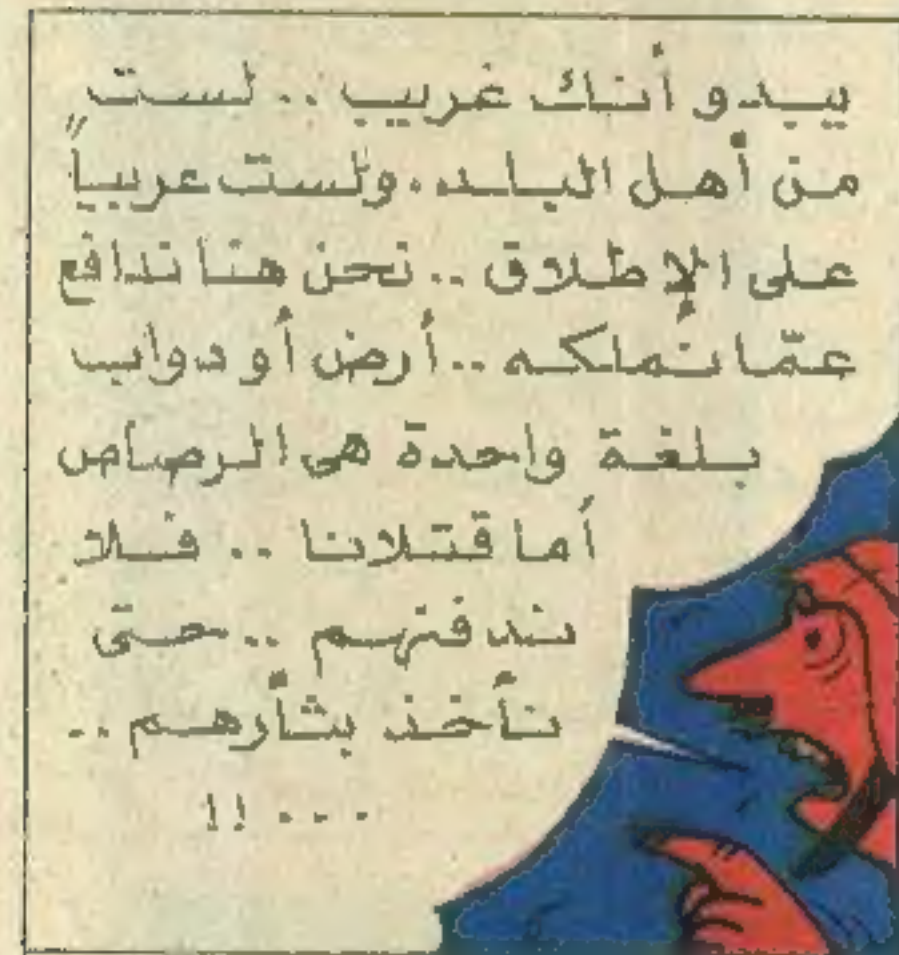 يبدو أنك غريب .. لست
من أهل البلد. ولست عربياً
على الإطلاق .. نحن هنا ندافع
عمّا نملكه .. أرض أو دواب
بلغة واحدة هى الرصاص
أما قتلانا .. فلا
ندفنهم .. حتى
نأخذ بثأرهم ..
... !!